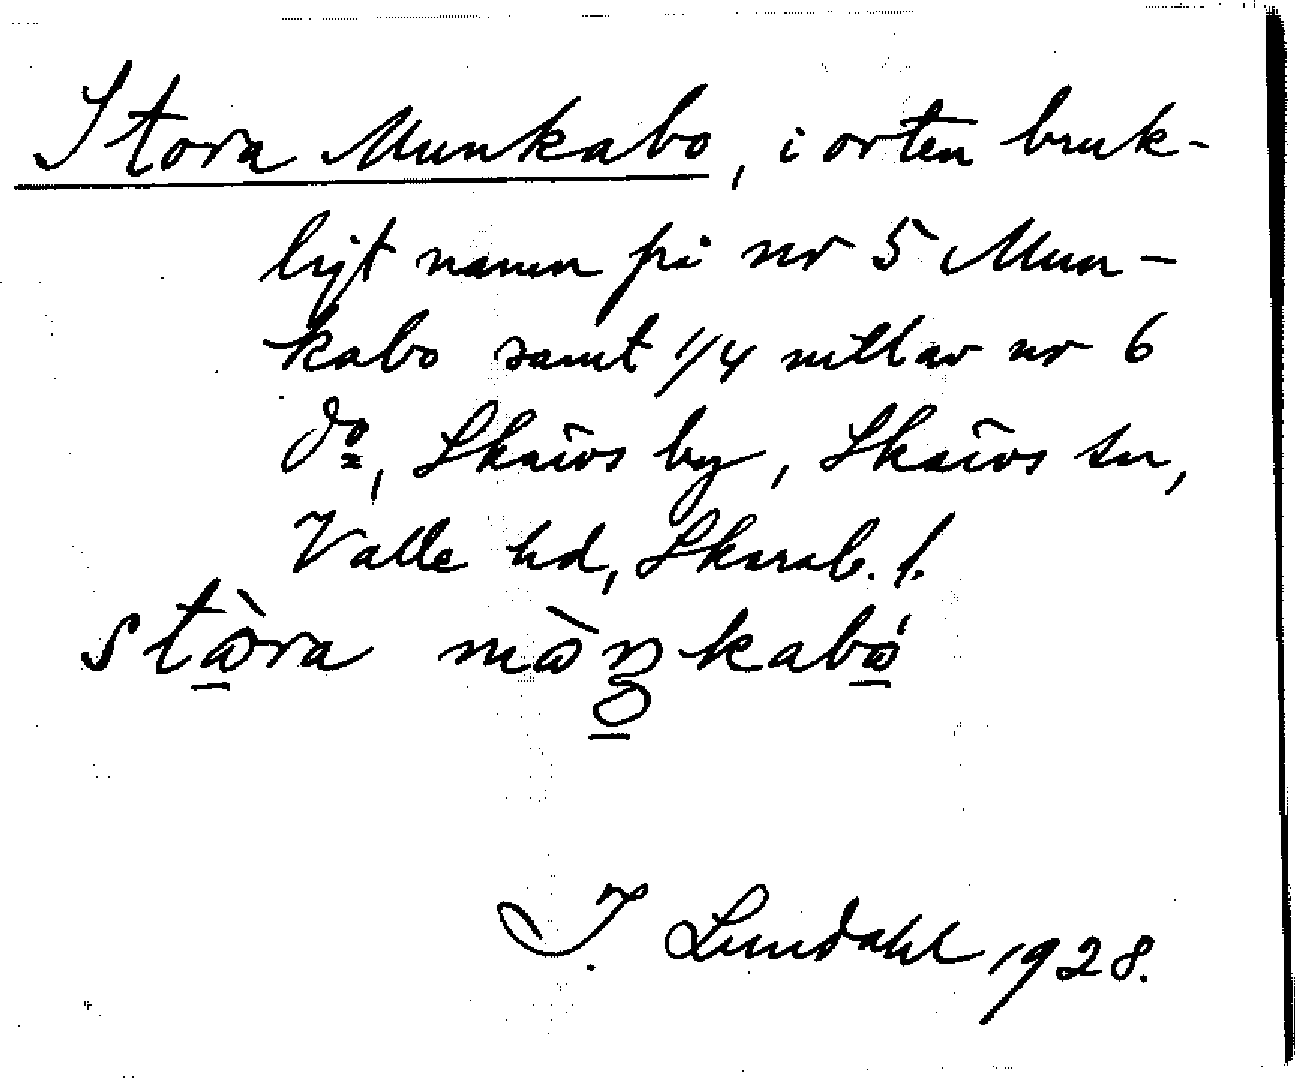 Stora Munkabo, i orten bruk-
ligt namn på nr 5 Mun-
kabo samt 1/4 mtl av nr 6
do, Skärvs by, Skärvs sn,
Valle hd, Skarab. l.
I. Lundahl 1928.